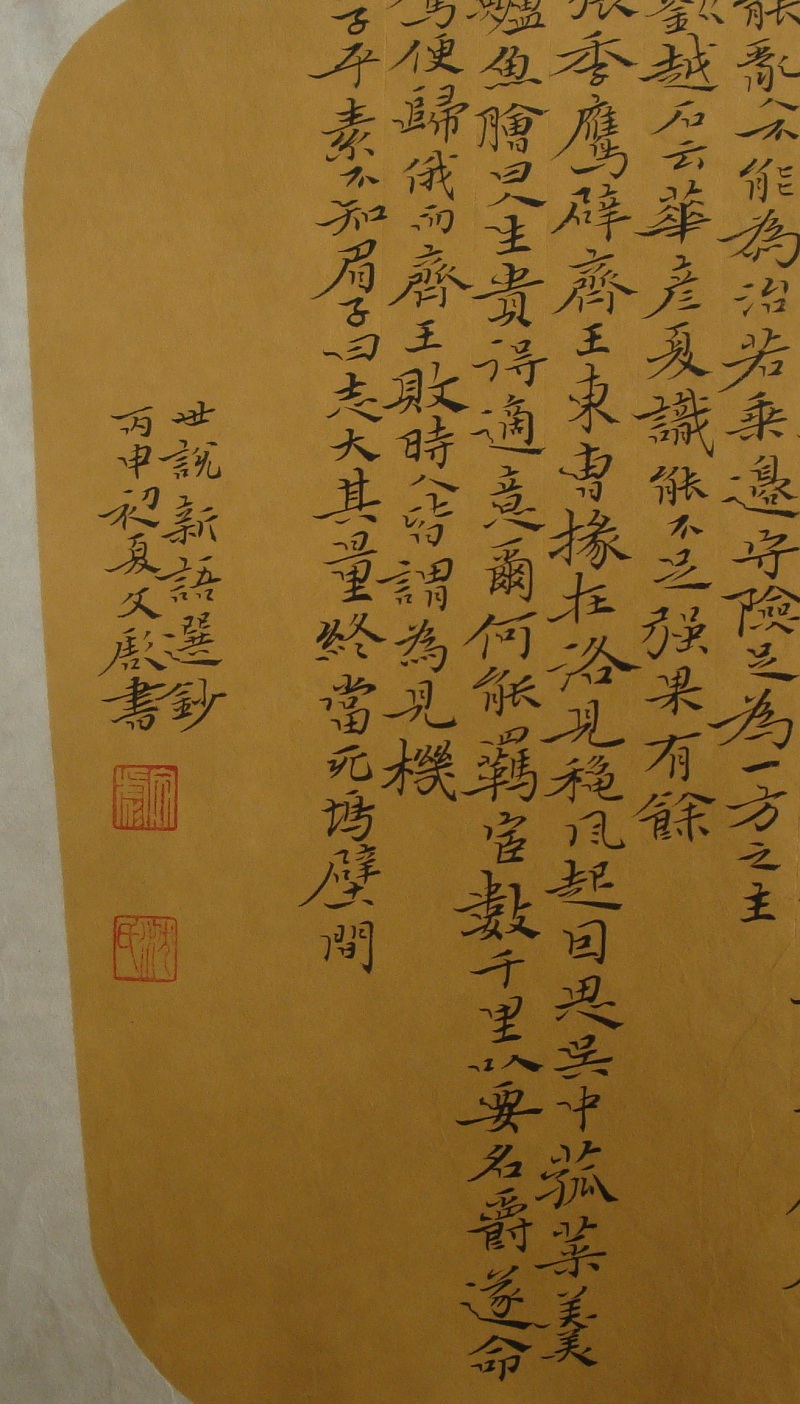 能亂人不能為治若乘邊守險足為一方之主
劉越石云華彥夏識能不足强果有餘
張季鷹辟齊王東曹掾在洛見穐風起因思吳中菰菜羹
鱸魚膾曰人生貴得適意爾何能羈宦數千里以要名爵遂命
駕便歸俄而齊王敗時人皆謂為見機
子平素不知眉子曰志大其量終當死塢壁間
世說新語選鈔
丙申初夏文彪書
沈氏